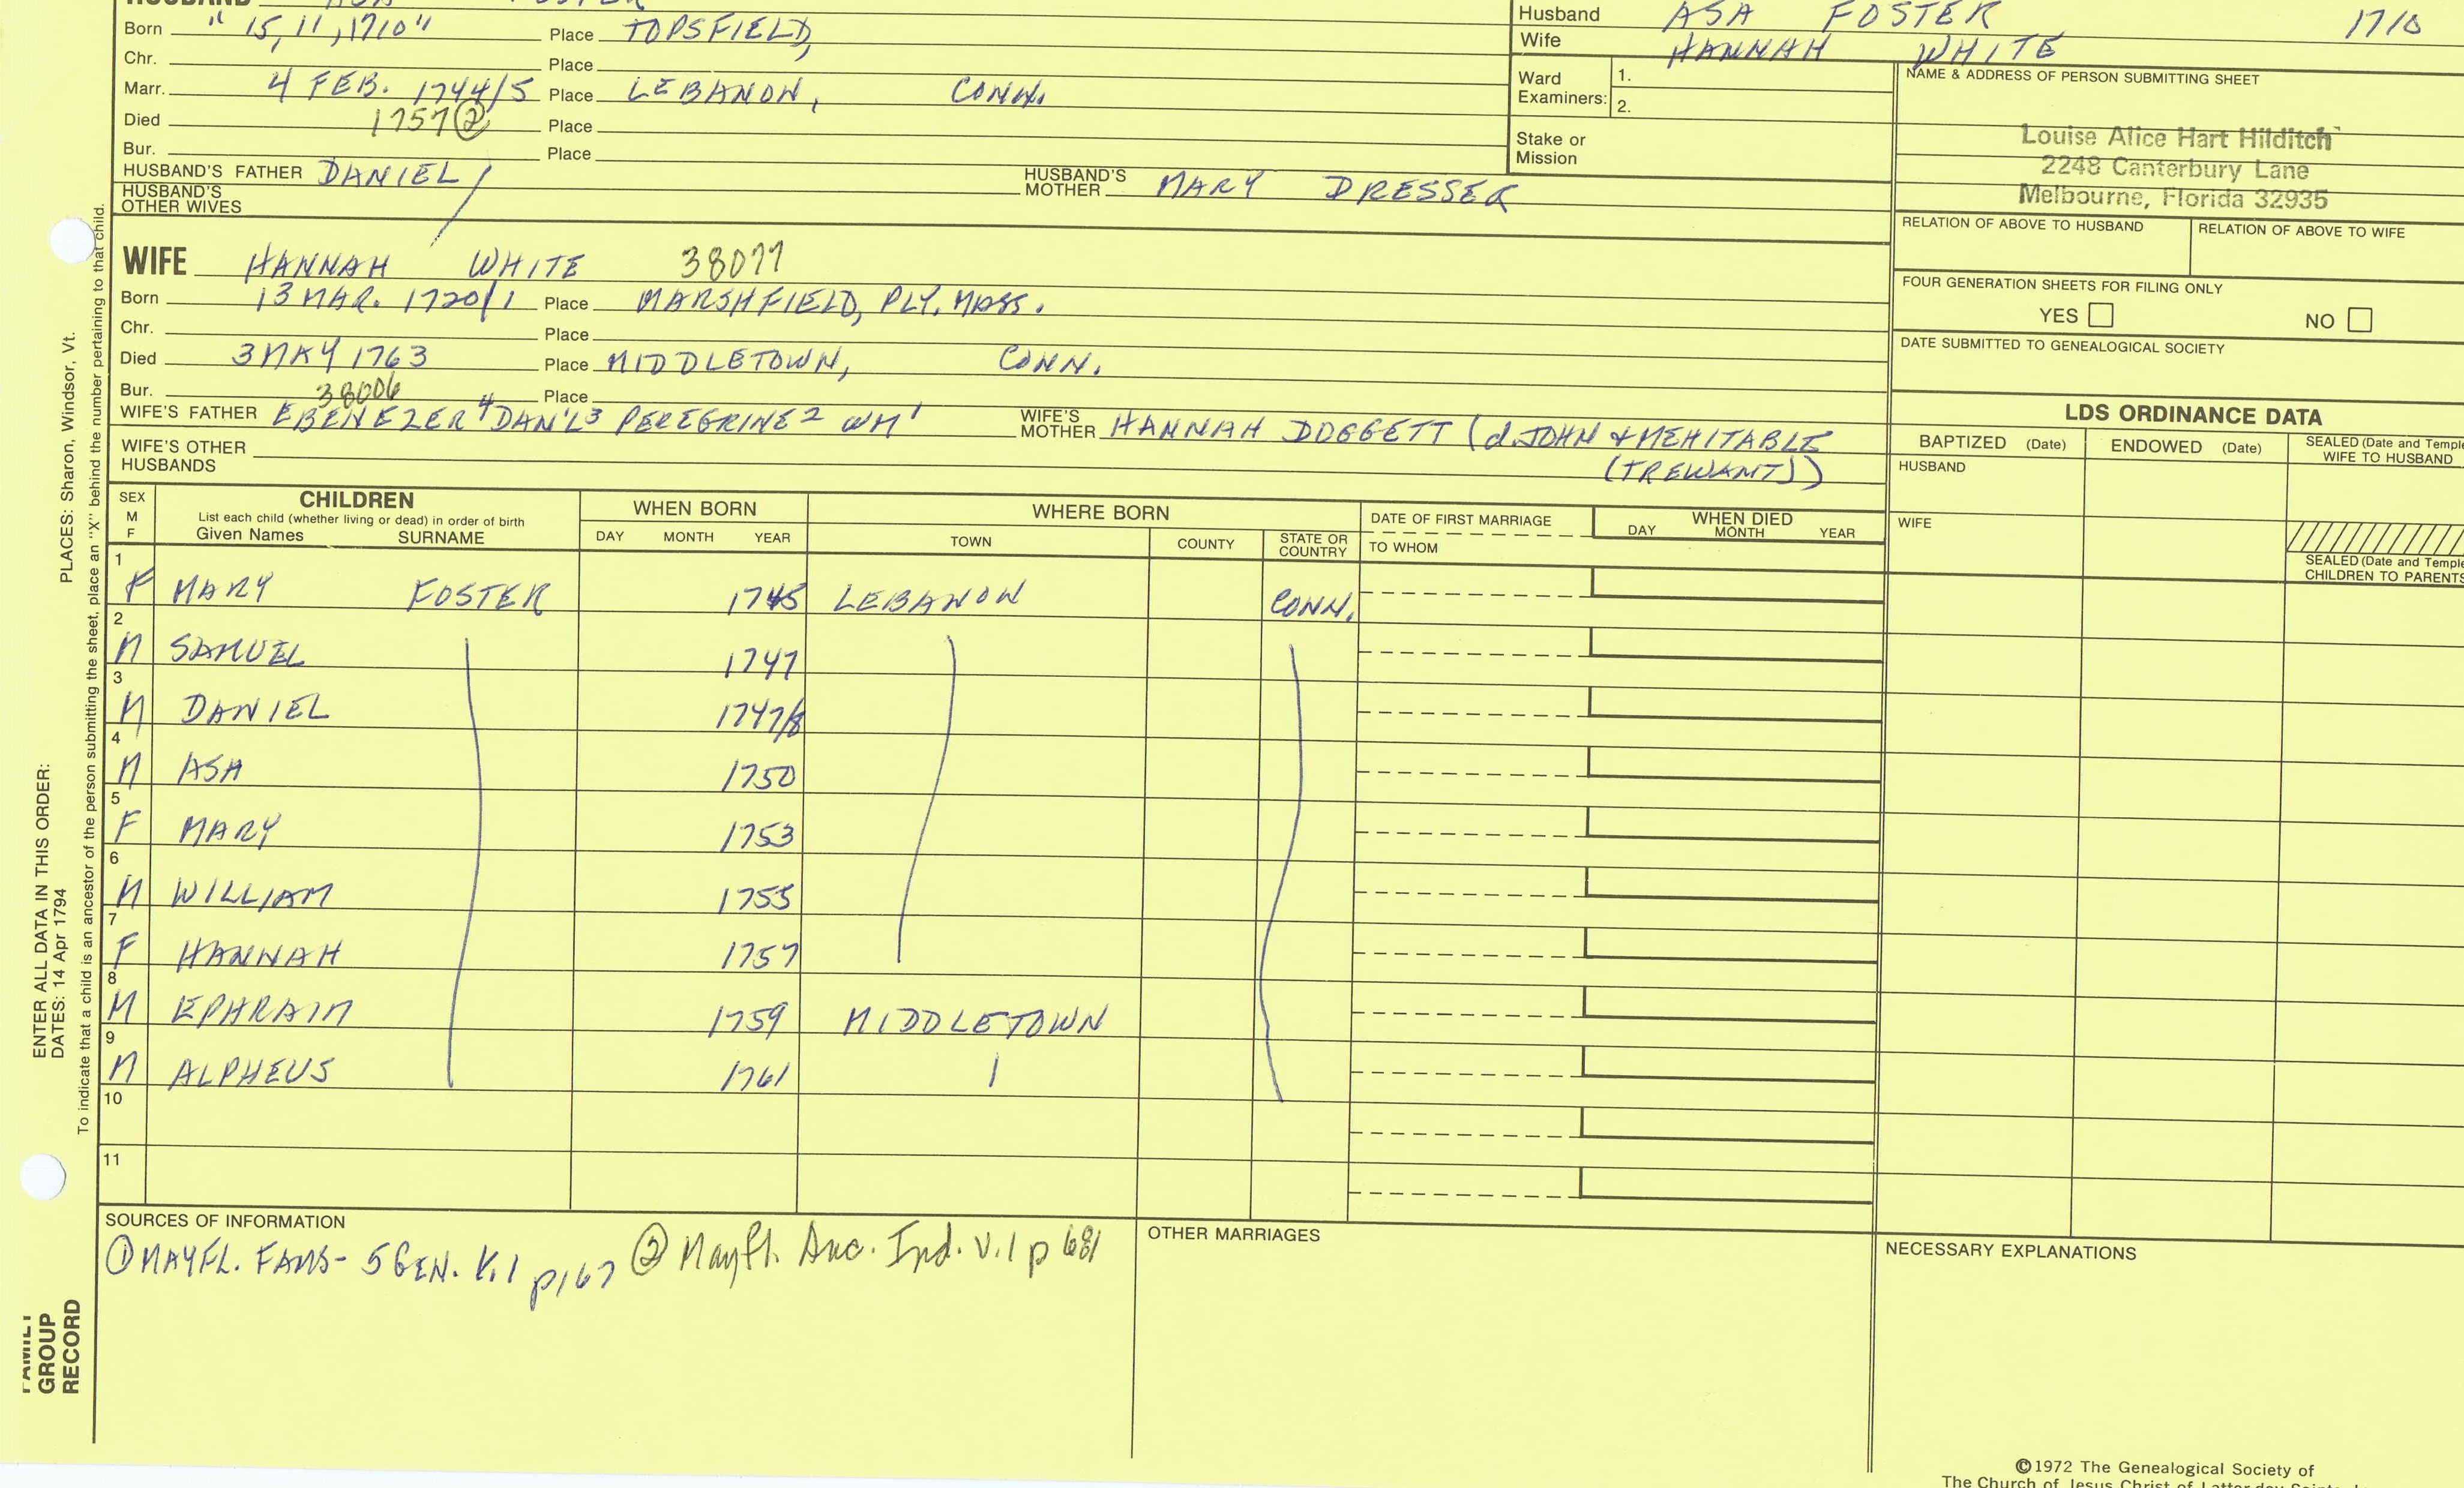 Husband ASA FOSTER 1710
Born "15, 11, 1710" Place TOPSFIELD,
Wife HANNAH WHITE
Chr. Place
Marr. 4 FEB. 1744/5 Place LEBANON, CONN.
Died 1757 ② Place
Bur. Place
HUSBAND'S FATHER DANIEL HUSBAND'S MOTHER MARY DRESSER
HUSBAND'S OTHER WIVES
Ward Examiners: 1.
2.
Stake or Mission
NAME & ADDRESS OF PERSON SUBMITTING SHEET
Louise Alice Hart Hilditch
2248 Canterbury Lane
Melbourne, Florida 32935
RELATION OF ABOVE TO HUSBAND RELATION OF ABOVE TO WIFE
FOUR GENERATION SHEETS FOR FILING ONLY
YES NO
DATE SUBMITTED TO GENEALOGICAL SOCIETY
WIFE HANNAH WHITE 38077
Born 13 MAR. 1720/1 Place MARSHFIELD, PLY. MASS.
Chr. Place
Died 3 MAY 1763 Place MIDDLETOWN, CONN.
Bur. 38006 Place
WIFE'S FATHER EBENEZER 4 DAN'L 3 PEREGRINE 2 WM 1 WIFE'S MOTHER HANNAH DOGGETT (d. JOHN & MEHITABLE
(TREWANT))
WIFE'S OTHER HUSBANDS
LDS ORDINANCE DATA
BAPTIZED (Date) ENDOWED (Date) SEALED (Date and Temple
WIFE TO HUSBAND
HUSBAND
WIFE
SEALED (Date and Temple
CHILDREN TO PARENTS
SEX M F CHILDREN WHEN BORN WHERE BORN DATE OF FIRST MARRIAGE WHEN DIED
List each child (whether living or dead) in order of birth
Given Names SURNAME DAY MONTH YEAR TOWN COUNTY STATE OR COUNTRY TO WHOM DAY MONTH YEAR
1 F MARY FOSTER 1745 LEBANON CONN.
2 M SAMUEL 1747
3 M DANIEL 1747/8
4 M ASA 1750
5 F MARY 1753
6 M WILLIAM 1755
7 F HANNAH 1757
8 M EPHRAIM 1759 MIDDLETOWN
9 M ALPHEUS 1761
10
11
SOURCES OF INFORMATION
① MAYFL. FAMS- 5 GEN. V.1 p167 ② Mayfl. Anc. Ind. V.1 p 681
OTHER MARRIAGES
NECESSARY EXPLANATIONS
©1972 The Genealogical Society of
The Church of Jesus Christ of Latter-day
PLACES: Sharon, Windsor, Vt.
ENTER ALL DATA IN THIS ORDER:
DATES: 14 Apr 1794
To indicate that a child is an ancestor of the person submitting the sheet, place an "X" behind the number pertaining to that child.
FAMILY
GROUP
RECORD